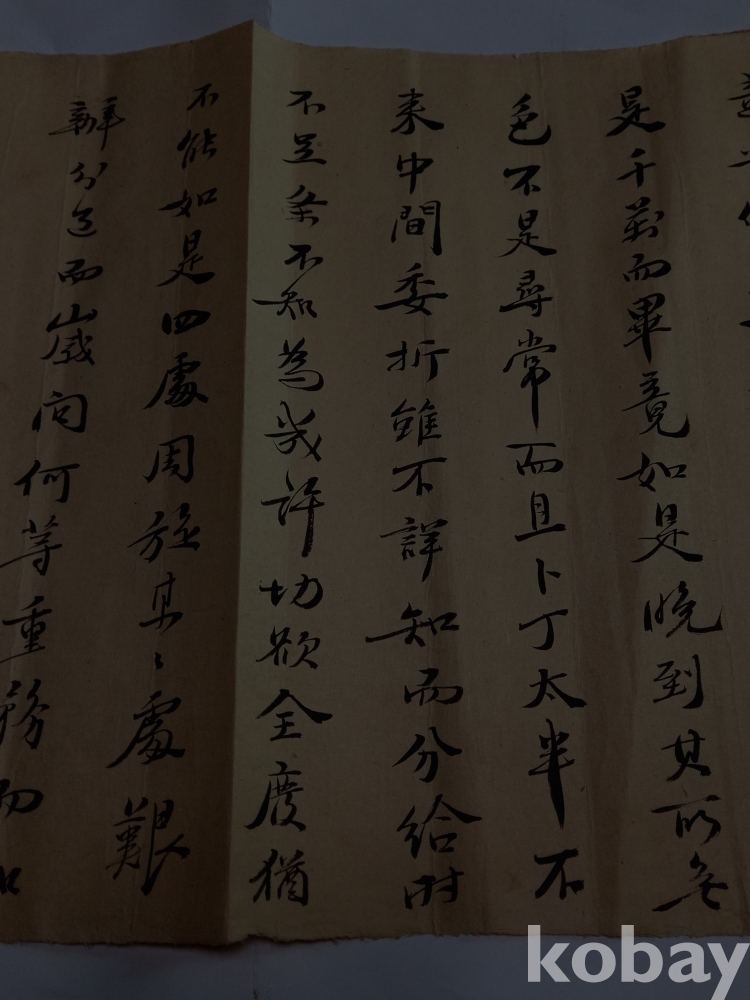 是千萬而畢竟如是晩到其所無
色不是尋常而且卜丁太半不
來中間委折雖不詳知而分給時
不足条不知為幾許切欲全度猶
不能如是四處周旋某〻處艱
辦分送而歲向何等重務而
kobay